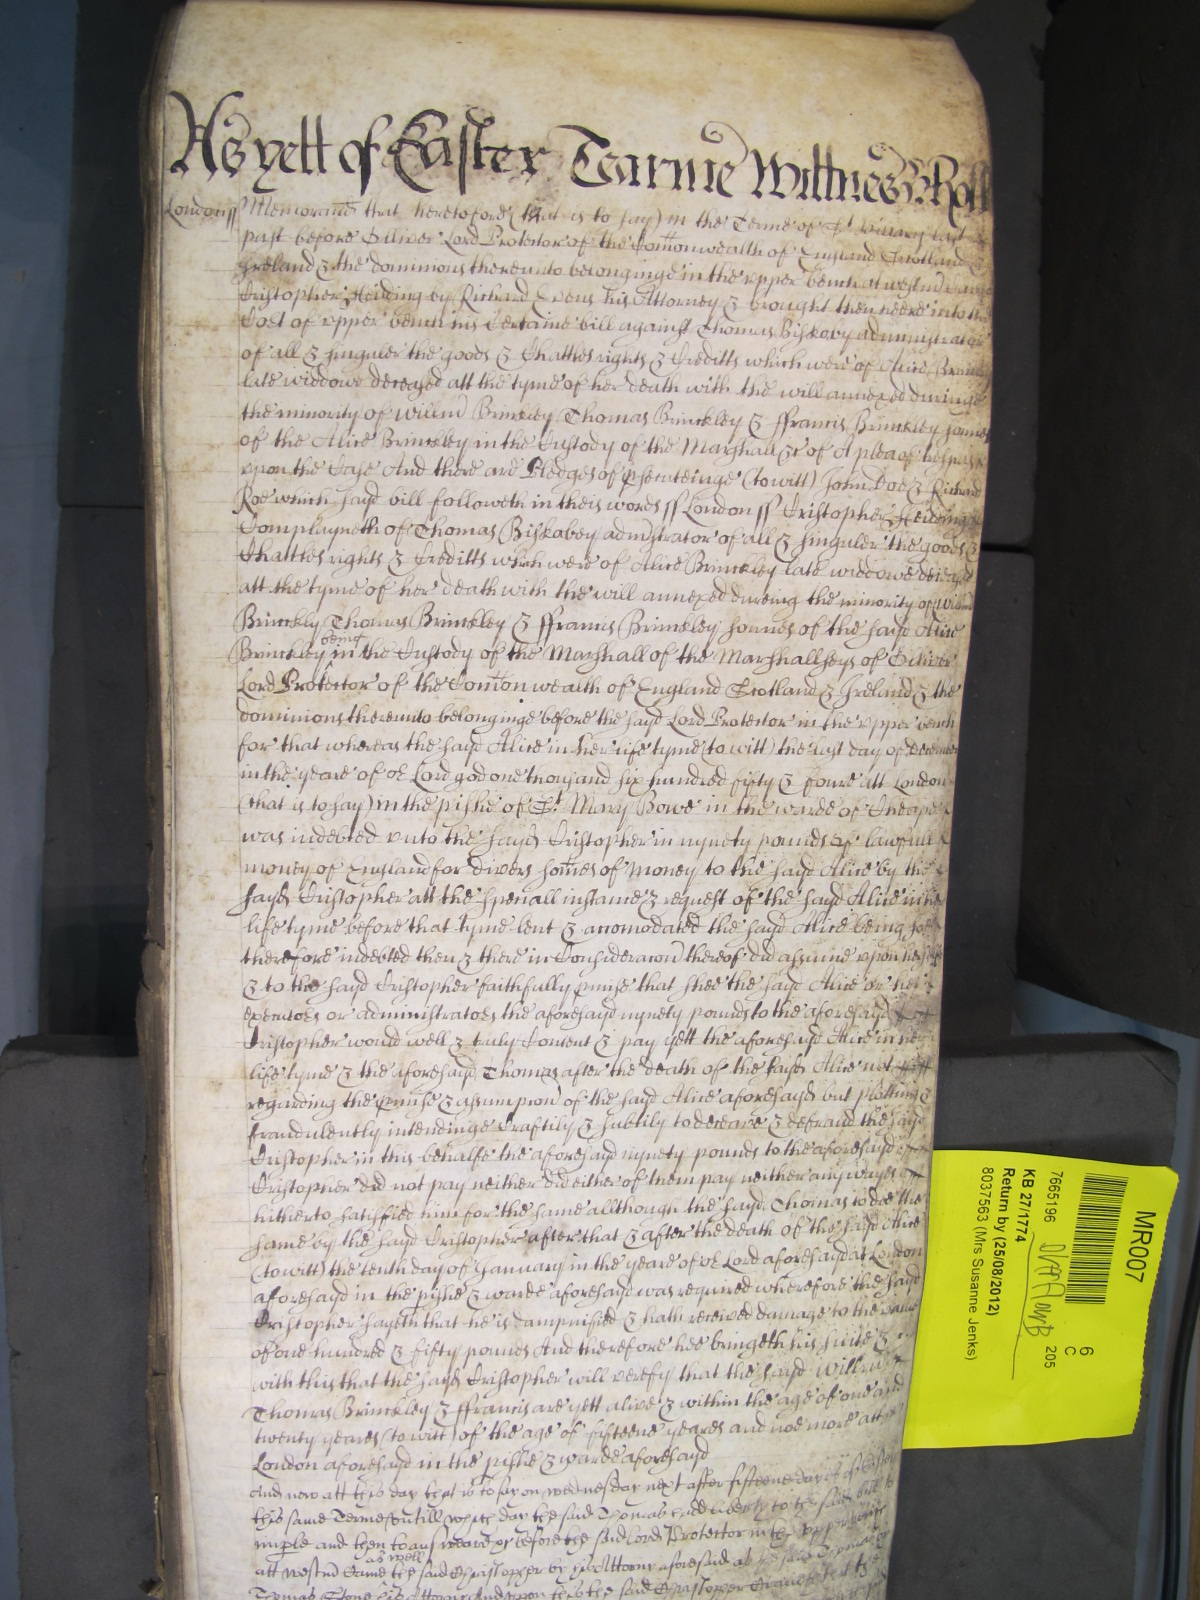 As yett of Easter Tearme Wittnes B: Roll
London ss Memorand that heretofore (that is to say) in the Terme of St Hillary last
past before Olliver Lord Protector of the Comonwealth of England Scotland &
Ireland & the dominions thereunto belonginge in the upper bench at westmr came
Cristopher Heiding by Richard Evens his Attorney & brought then heere into the
Cort of upper bench his Certaine bill against Thomas Biskovy administrator
of all & singuler the goods & Chattles rights & Creditts which were of Alice Brinckley
late widdowe deceased att the tyme of her death with the will annexed duringe
the minority of willm Brinckley Thomas Brinckley & ffrancis Brinckley sonnes
of the Alice Brinckley in the Custody of the Marshall &c of A plea of trespas
upon the Case And there are Pledges of psecuteinge (to witt) John Doe & Richard
Roe which sayd bill followeth in theis words ss London ss Cristopher Heiding
Complayneth of Thomas Biskabey administrator of all & singuler the goods &
Chattles rights & Creditts which were of Alice Brinckley late widdowe deceased
att the tyme of her death with the will annexed dureing the minority of willm
Brinckly Thomas Brinckley & ffrancis Brinckley sonnes of the sayd Alice
Brinckley being in the Custody of the Marshall of the Marshallseys of Oliver
Lord Protector of the Comon wealth of England Scotland & Ireland & the
dominions thereunto belonginge before the sayd Lord Protector in the upper bench
for that whereas the sayd Alice in her life tyme (to witt) the last day of december
in the yeare of or Lord god one thousand six hundred fifty & foure att London
(that is to say) in the pishe of St Mary Bowe in the warde of Cheape
was indebted unto the sayd Cristopher in nynety pounds of lawfull
money of England for divers somes of money to the sayd Alice by the
sayd Cristopher att the speciall instance & request of the sayd Alice in her
life tyme before that tyme lent & accomodated the sayd Alice being soe
therefore indebted then & there in Consideracon thereof did assume upon her selfe
& to the sayd Cristopher faithfully pmise that shee the sayd Alice or her
executors or administrators the aforesayd nynety pounds to the aforesayd
Cristopher would well & truly Content & pay yett the aforesayd Alice in her
life tyme & the aforesayd Thomas after the death of the sayd Alice not
regarding the pmise & assumpcon of the sayd Alice aforesayd but plotting &
fraudulently intendinge Craftily & subtily to deceave & defraud the sayd
Cristopher in this behalfe the aforesayd nynety pounds to the aforesayd
Cristopher did not pay neither did either of them pay neither any wayes
hitherto satisfied him for the same allthough the sayd Thomas to doe the
same by the sayd Cristopher after that & after the death of the sayd Alice
(to witt) the tenth day of January in the yeare of or Lord aforesayd at London
aforesayd in the pishe & warde aforesayd was required wherefore the sayd
Cristopher sayeth that he is dampnified & hath received damage to the value
of one hundred & fifty pounds And therefore hee bringeth his suite &
with this that the sayd Cristopher will verefy that the sayd willm
Thomas Brinckley & ffrancis are yett alive & within the age of one and
twenty yeares (to witt) of the age of fifteene yeares and noe more att
London aforesayd in the pishe & warde aforesayd
And now att this day that is to say on wednesday next after fifteene dayes of Easter
this same Terme untill which day the said Thomas had liberty to the said bill to
imple and then to answeare &c before the said Lord Protector in the upper bench
att westmr Came as well the said Christopher by his Attorny aforesaid as the said Thomas by
Thomas Stone his Attorney And upon this the said Christopher
MR007
7665196
6
C
205
KB 27/1774
Return by (25/08/2012)
8037563 (Mrs Susanne Jenks)